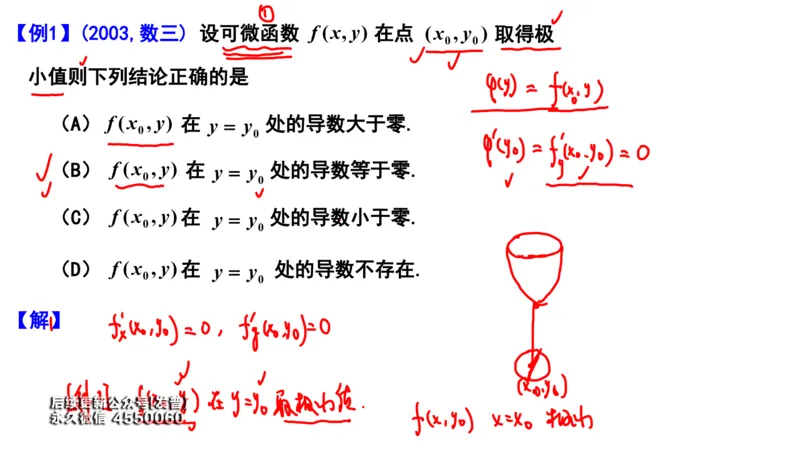 【例1】(2003,数三) 设可微函数 f(x,y) 在点 (x₀,y₀) 取得极
小值则下列结论正确的是
(A) f(x₀,y) 在 y = y₀ 处的导数大于零.
(B) f(x₀,y) 在 y = y₀ 处的导数等于零.
(C) f(x₀,y)在 y = y₀ 处的导数小于零.
(D) f(x₀,y)在 y = y₀ 处的导数不存在.
【解】
①
φ(y) = f(x₀,y)
φ'(y₀) = f'y(x₀,y₀) = 0
(x₀,y₀)
f'x(x₀,y₀)=0, f'y(x₀,y₀)=0
在 y=y₀ 取极小值.
f(x,y₀) x=x₀ 极小
后续更新公众号(发普)
永久微信 4550060